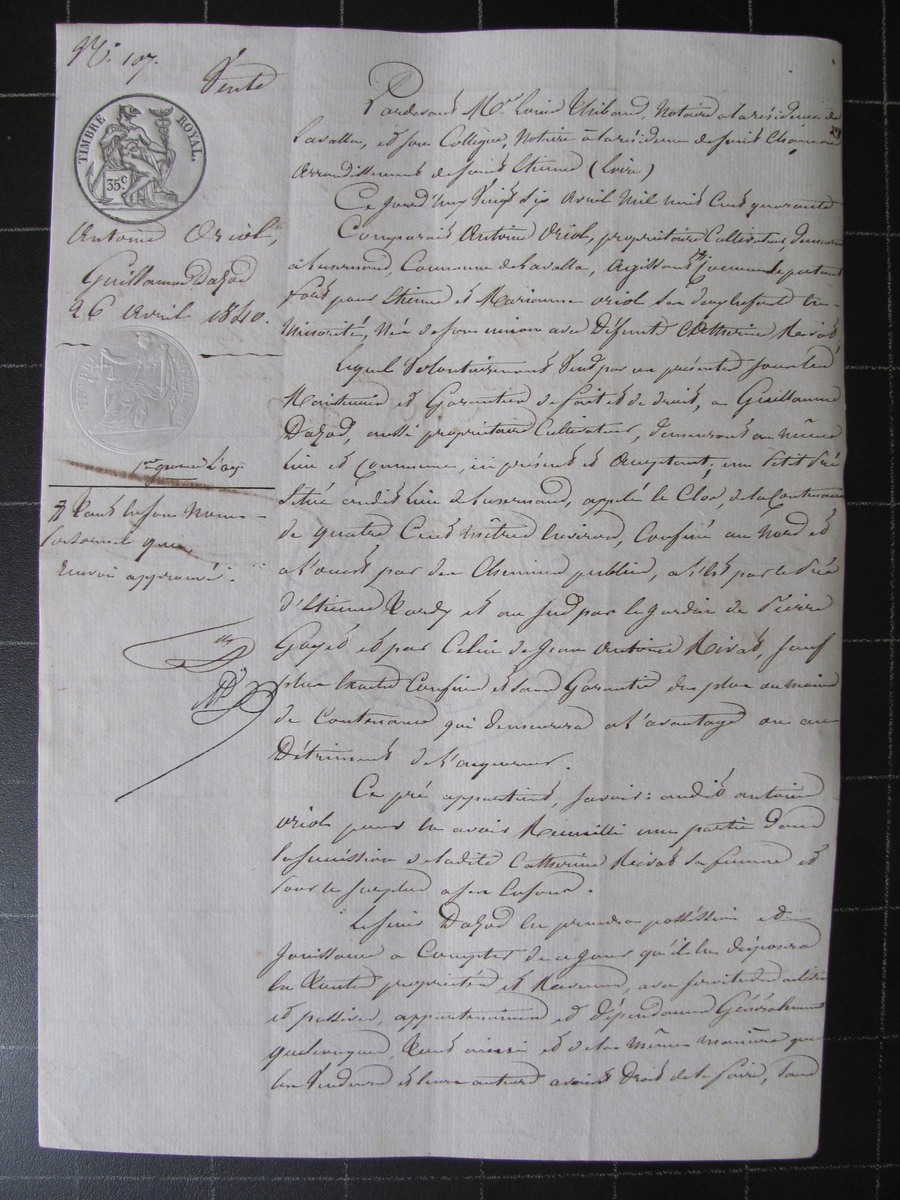 N° 107.
Vente
TIMBRE ROYAL.
35 c
Antoine Oriol,
Guillaume Dazod
26 avril 1840.
1re grosse
tant en son nom
personnel que
renvoi approuvé.
Pardevant Me Louis Thibaud, Notaire à la résidence de
Lavalla, et son Collègue, Notaire à la résidence de Saint Chamond
arrondissement de Saint Etienne (Loire)
Ce jourd'huy Vingt six Avril Mil huit Cent quarante
Comparait Antoine Oriol, propriétaire Cultivateur demeurant
à Luzernod, Commune de Lavalla, Agissant Comme se portant
fort pour Etienne et Marianne oriol ses deux enfants en
Minorité, Nés de son union avec Défunte Catherine Rivat,
Lequel Volontairement Vend par ces présentes sous les
Maintenue et Garantie de fait et de droit, a Guillaume
Dazod, aussi propriétaire Cultivateur, demeurant au même
lieu et Commune, ici présent et acceptant, un Petit Pré
Situé audit lieu de Luzernod, appelé le Clos, de la Contenance
de quatre Cents mètres environ, Confiné au Nord et
a l'ouest par des Chemins publics, a l'Est par le Pré
d'Etienne Tardy et au Sud par le jardin de Pierre
Gayet et par Celui de Jean Antoine Rivat, sauf
plus Exacts Confins et sans Garantie du plus au moins
de Contenance qui demeurera a l'avantage ou au
Détriment de l'acquéreur.
Ce pré appartient, savoir: audit antoine
oriol pour en avoir Recueilli une partie dans
la succession de ladite Catherine Rivat sa femme et
pour le surplus a ses Enfans.
Le sieur Dazod en prendra possession et
Jouissance a Compter de ce jour qu'il en disposera
en toute propriété et Revenus, avec servitudes actives
et passives, appartenances et dépendances Généralement
quelconques, tout ainsi et de la même manière que
les Vendeurs et leurs auteurs avaient Droit de le faire, sans